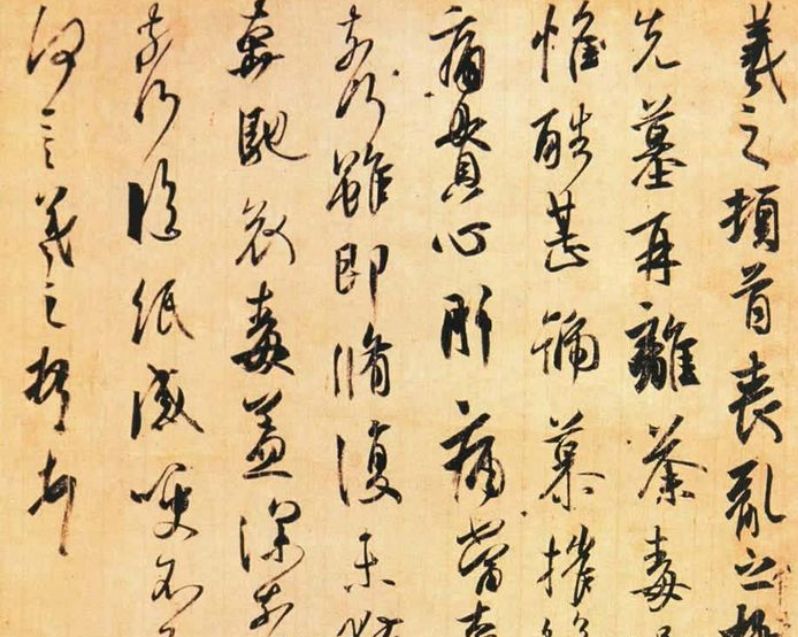 羲之頓首喪亂之極
先墓再離荼毒
惟酷甚號慕摧絕
痛貫心肝痛當奈
奈何雖即脩復未獲
奔馳哀毒益深奈
奈何臨紙感哽不
何言羲之頓首